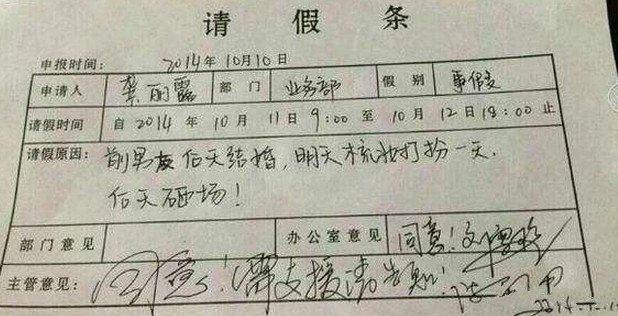 请假条
申报时间: 2014年10月10日
申请人 龚丽露 部门 业务部 假别 事假
请假时间 自2014年10月11日9:00至10月12日18:00止
请假原因: 前男友后天结婚,明天梳妆打扮一天.
后天砸场!
部门意见 办公室意见 同意!
主管意见: 同意!需支援请告知!